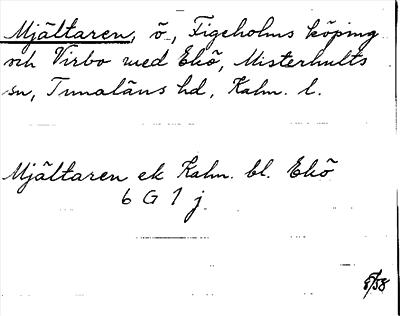 Mjältaren, ö., Figeholms köping
och Virbo med Ekö, Misterhults
sn, Tunaläns hd, Kalm. l.
Mjältaren ek Kalm. bl. Ekö
6 G 1 j
8/58